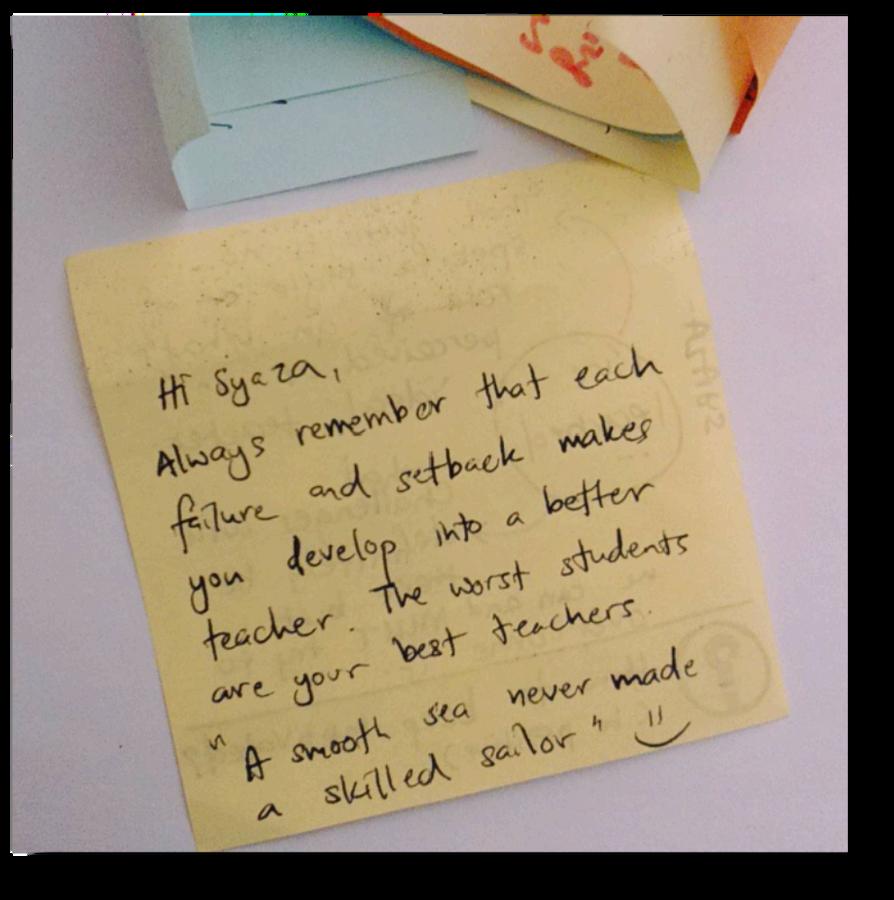 Hi Syaza,
Always remember that each
failure and setback makes
you develop into a better
teacher. The worst students
are your best teachers.
" A smooth sea never made
a skilled sailor "